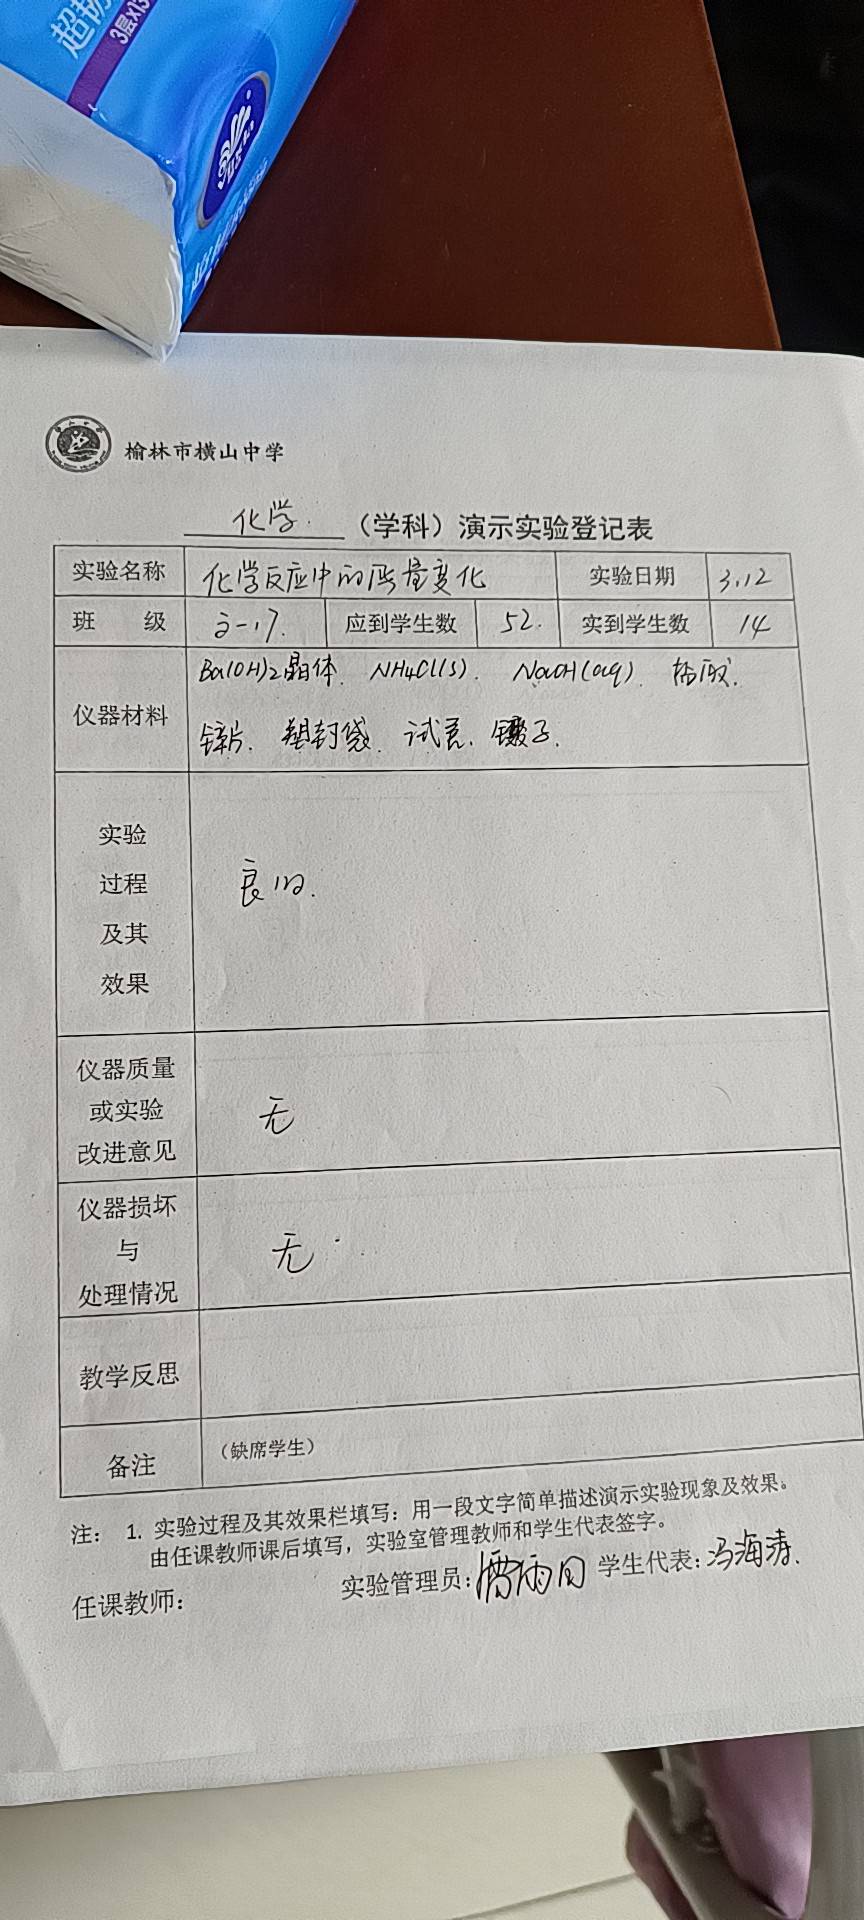 超韧
3层X13
榆林市横山中学
化学.（学科）演示实验登记表
实验名称 化学反应中的能量变化 实验日期 3.12
班 级 高一.17. 应到学生数 52. 实到学生数 14
仪器材料 Ba(OH)2晶体. NH4Cl(s). NaOH(aq). 稀硫酸.
锌片. 塑封袋. 试管. 镊子.
实验
过程
及其
效果
良好.
仪器质量
或实验
改进意见
无
仪器损坏
与
处理情况
无.
教学反思
备注 （缺席学生）
注： 1. 实验过程及其效果栏填写：用一段文字简单描述演示实验现象及效果。
由任课教师课后填写，实验室管理教师和学生代表签字。
任课教师： 实验管理员： 学生代表：冯海涛.